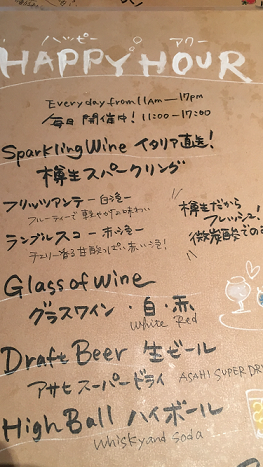 ハッピー アワー
HAPPY HOUR
Every day from 11AM—17PM
毎日開催中! 11:00-17:00
Sparkling Wine イタリア直送!
樽生スパークリング
フリッツァンテ - 白泡 -
フルーティーで軽やかな味わい
樽生だから
フレッシュ!
微炭酸での
ランブルスコ - 赤泡 -
チェリー香る甘酸っぱい赤い泡!
Glass of wine
グラスワイン ・白・赤
White Red
Draft Beer 生ビール
アサヒスーパードライ ASAHI SUPER DR
High Ball ハイボール
Whisky and Soda